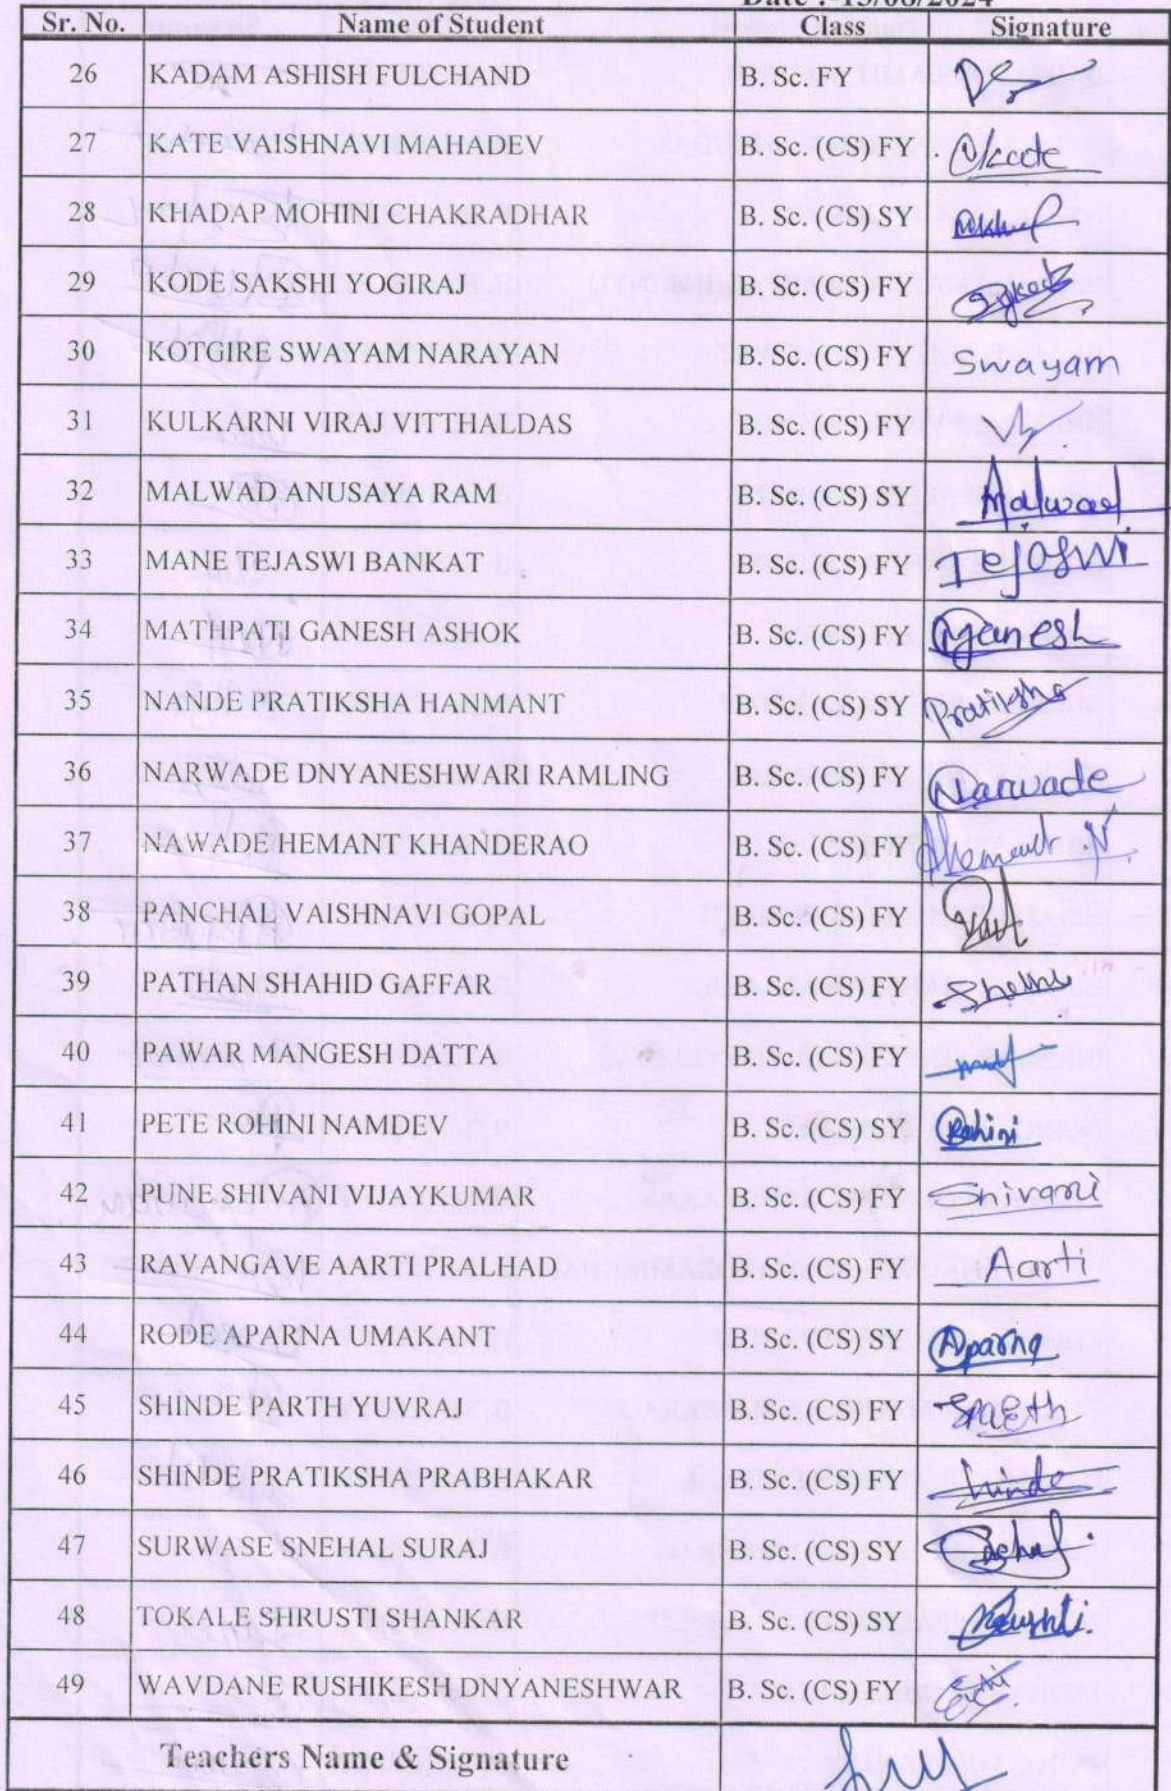 Date :-13/08/2024
Sr. No. Name of Student Class Signature
26 KADAM ASHISH FULCHAND B. Sc. FY
27 KATE VAISHNAVI MAHADEV B. Sc. (CS) FY
28 KHADAP MOHINI CHAKRADHAR B. Sc. (CS) SY
29 KODE SAKSHI YOGIRAJ B. Sc. (CS) FY
30 KOTGIRE SWAYAM NARAYAN B. Sc. (CS) FY Swayam
31 KULKARNI VIRAJ VITTHALDAS B. Sc. (CS) FY
32 MALWAD ANUSAYA RAM B. Sc. (CS) SY Malwad
33 MANE TEJASWI BANKAT B. Sc. (CS) FY Tejaswi
34 MATHPATI GANESH ASHOK B. Sc. (CS) FY Ganesh
35 NANDE PRATIKSHA HANMANT B. Sc. (CS) SY Pratiksha
36 NARWADE DNYANESHWARI RAMLING B. Sc. (CS) FY Narwade
37 NAWADE HEMANT KHANDERAO B. Sc. (CS) FY Hemant N.
38 PANCHAL VAISHNAVI GOPAL B. Sc. (CS) FY
39 PATHAN SHAHID GAFFAR B. Sc. (CS) FY
40 PAWAR MANGESH DATTA B. Sc. (CS) FY
41 PETE ROHINI NAMDEV B. Sc. (CS) SY Rohini
42 PUNE SHIVANI VIJAYKUMAR B. Sc. (CS) FY Shivani
43 RAVANGAVE AARTI PRALHAD B. Sc. (CS) FY Aarti
44 RODE APARNA UMAKANT B. Sc. (CS) SY Aparna
45 SHINDE PARTH YUVRAJ B. Sc. (CS) FY
46 SHINDE PRATIKSHA PRABHAKAR B. Sc. (CS) FY
47 SURWASE SNEHAL SURAJ B. Sc. (CS) SY
48 TOKALE SHRUSTI SHANKAR B. Sc. (CS) SY
49 WAVDANE RUSHIKESH DNYANESHWAR B. Sc. (CS) FY
Teachers Name & Signature